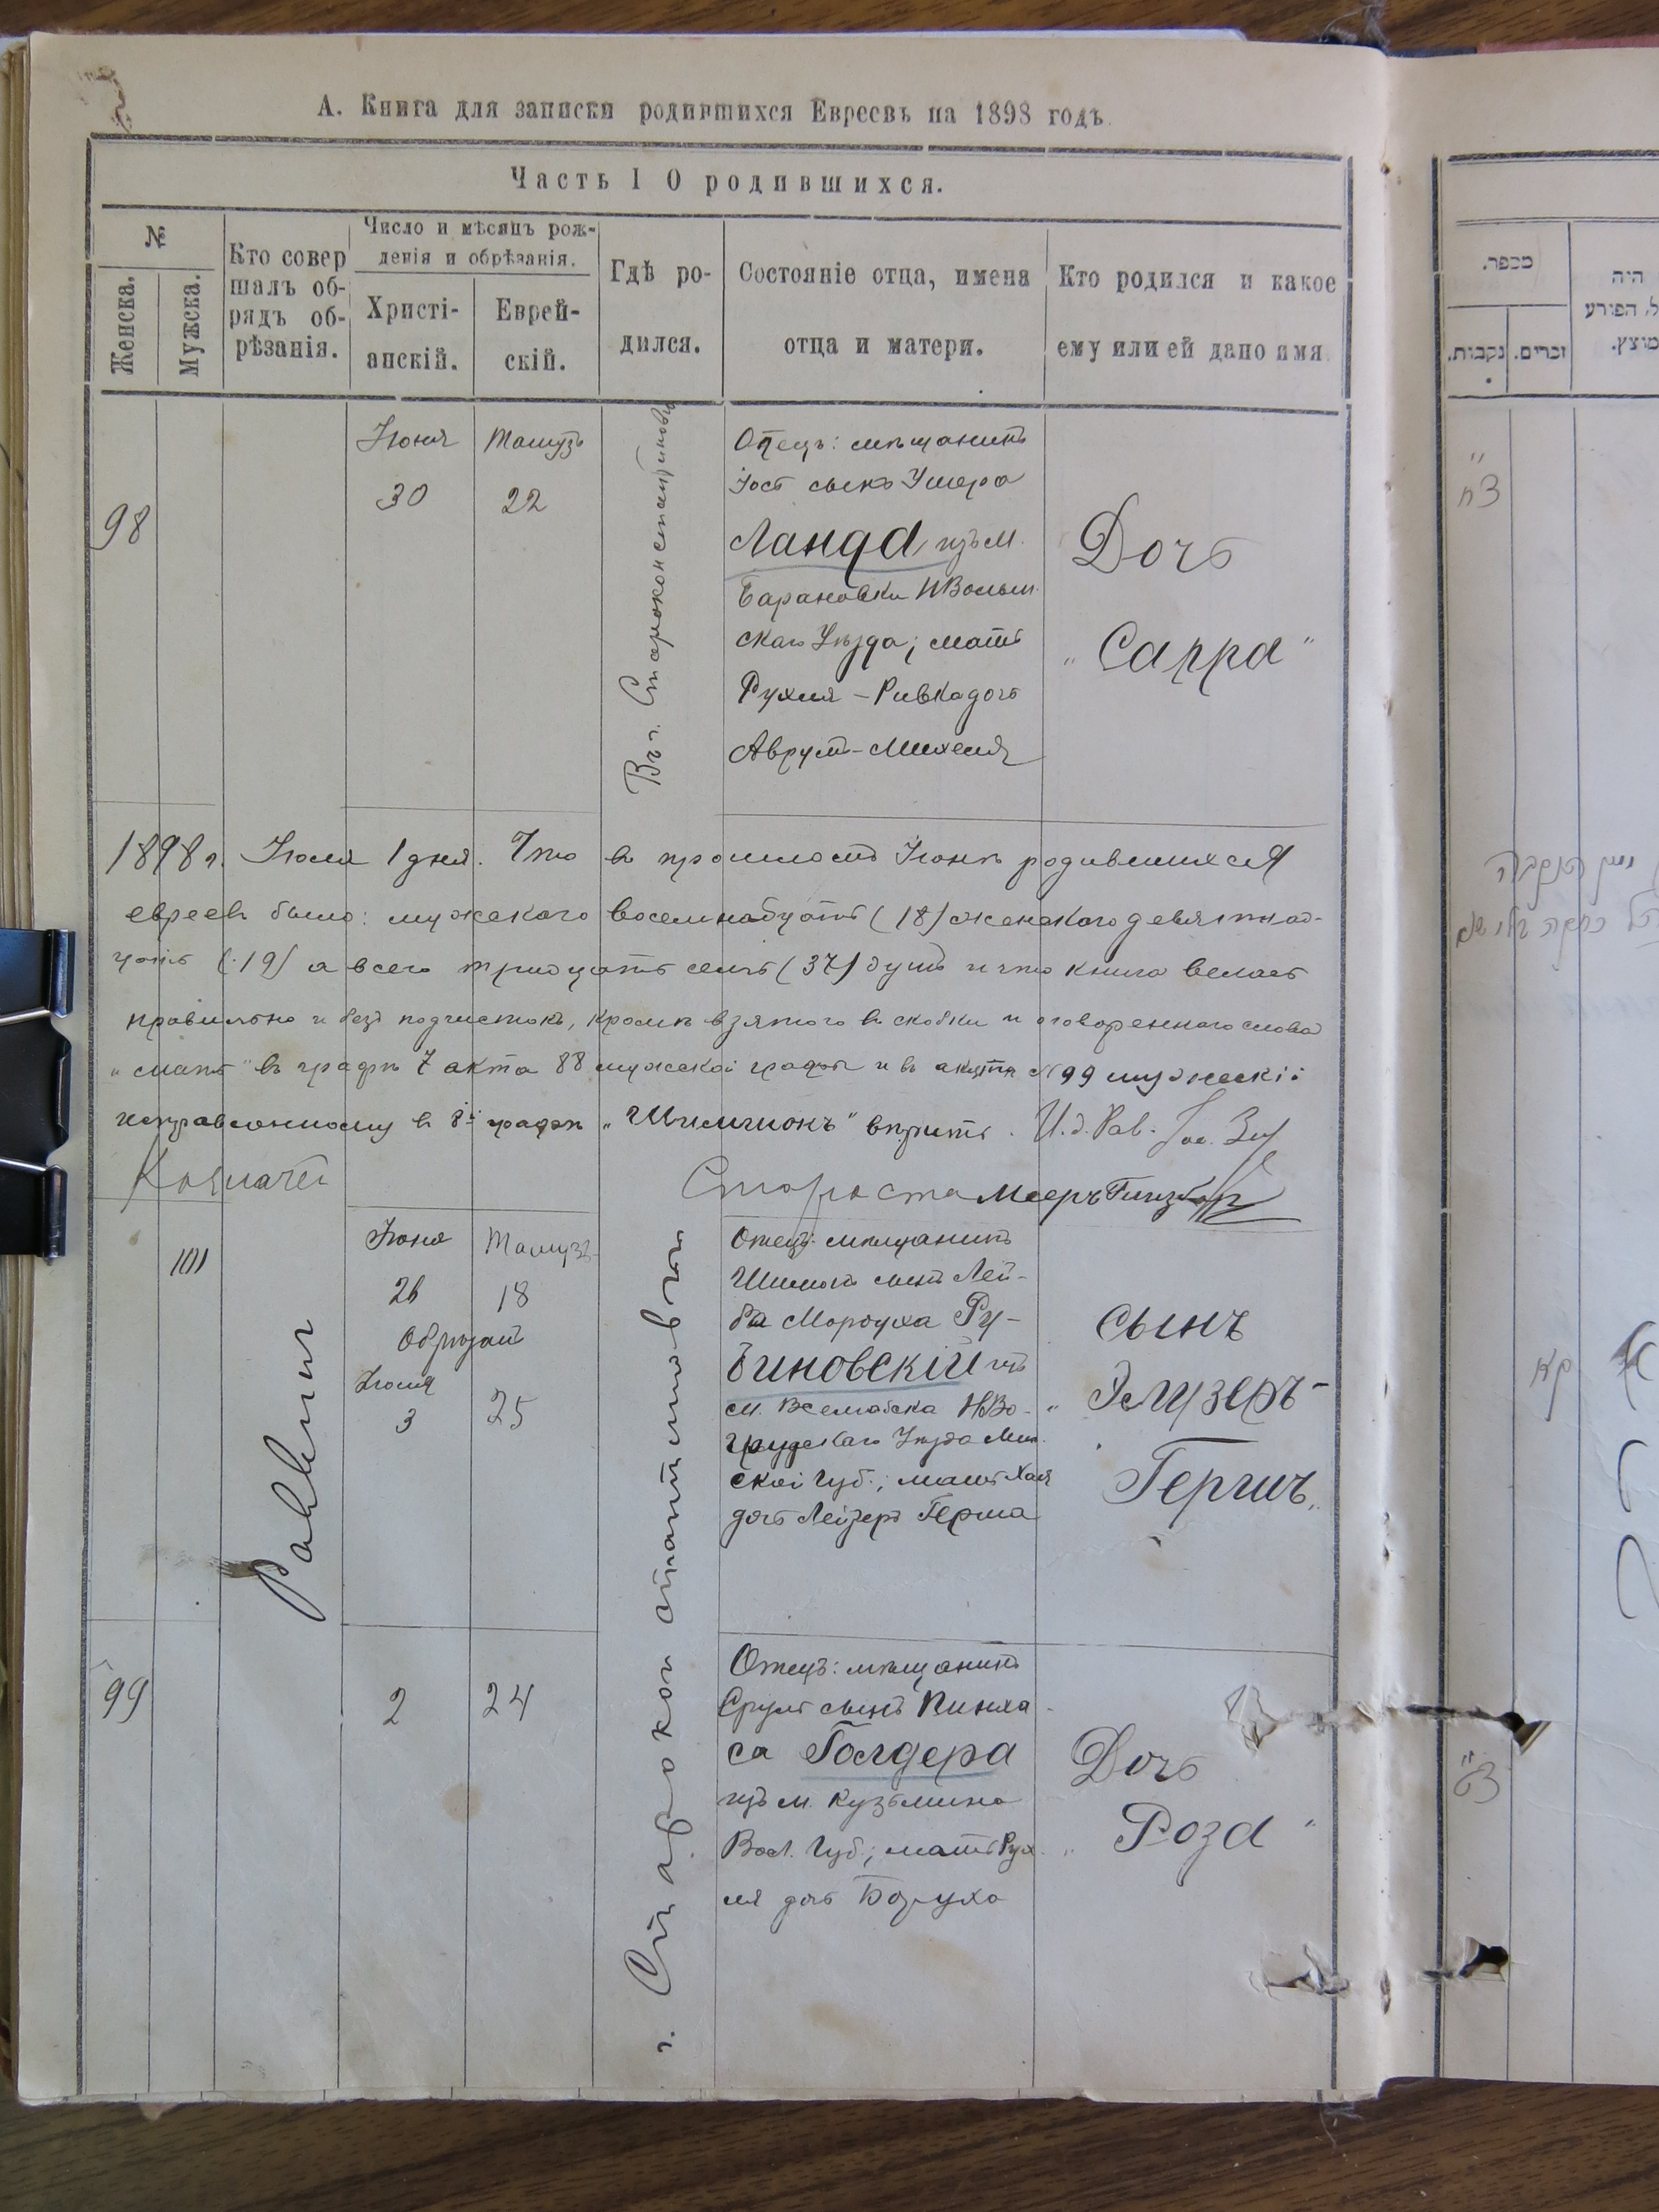 А. Книга для записки родившихся Евреевъ на 1898 годъ.
Часть I О родившихся.
№
Женска.
Мужска.
Кто совер
шалъ об-
рядъ об-
рѣзанія.
Число и мѣсяцъ рож-
денія и обрѣзанія.
Христі-
анскій.
Еврей-
скій.
Гдѣ ро-
дился.
Состояніе отца, имена
отца и матери.
Кто родился и какое
ему или ей дано имя.
98
Іюня
30
Тамузъ
22
Въ г. Староконстантиновѣ
Отецъ: мѣщанинъ
Іось сынъ Ушера
Ланда изъ м.
Барановки НВолын.
скаго Уѣзда; мать
Рухля-Ривка дочь
Аврумъ-Михеля
Дочь
„Сарра"
1898 г. Іюля 1 дня. Что въ прошломъ Іюнѣ родившихся
евреевъ было: мужескаго восемнадцать (18) женскаго девятнад-
цать (19) а всего тридцать семь (37) душъ и что книга велась
правильно и безъ подчистокъ, кромѣ взятого въ скобки и оговоренного слова
„мать" въ графѣ 7 акта 88 мужской графы и въ актѣ № 99 мужескій
исправленному въ 8й графѣ „Шимшонъ" вѣрить. И.д. Рав.
Казначей
Староста Мееръ Гинзбургъ
101
Раввинъ
Іюня
26
Обрѣзанъ
Іюля
3
Тамузъ
18
25
г. Староконстантиновѣ
Отецъ: мѣщанинъ
Шимонъ сынъ Лей-
ба Мордуха Ру-
биновскій изъ
м. НВо-
Уѣзда Мин.
ской Губ.; мать Хая
дочь Лейзеръ Герша
Сынъ
„Элузеръ-
Гершъ„
99
2
24
Отецъ: мѣщанинъ
Сруль сынъ Пинха-
са Голдера
изъ м. Кузьмина
Вол. Губ.; мать Рух
ля дочь Боруха
Дочь
„Роза"
מספר.
נקבות.
זכרים.
היה
הפורע
מוצץ.
צח
קא
צט